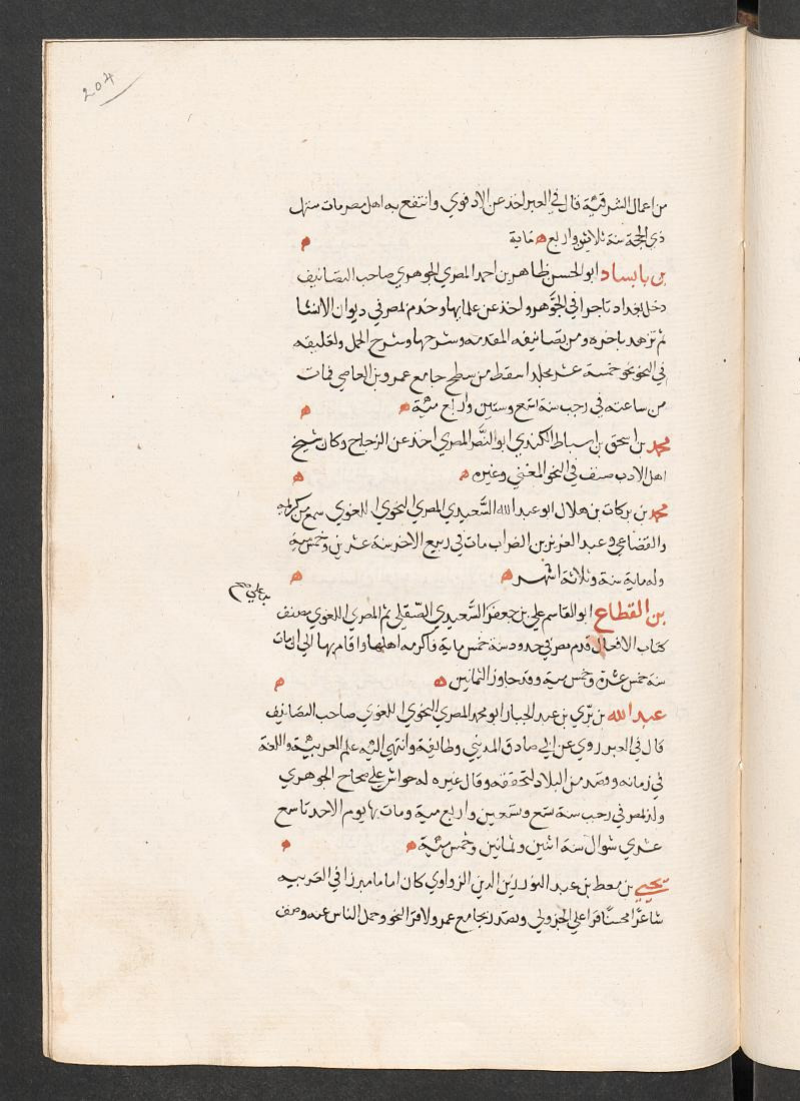 204
من اعمال الشرقية قال في العبر اخذ عن الادفوي وانتفع به اهل مصر مات مستهل
ذي الحجة سنة ثلاثين واربع ماية
بن بابساد ابو الحسن ظاهر بن احمد المصري الجوهري صاحب التصانيف
دخل بغداد تاجرا في الجوهر واخذ عن علمايها وخدم بمصر في ديوان الانشا
ثم تزهد باخره ومن تصانيفه المقدمة وشرحها وشرح الجمل وتعليقه
في النحو نحو خمسة عشر مجلدا سقط من سطح جامع عمرو بن العاصي فمات
من ساعته في رجب سنة تسع وستين واربع مئية
محمد بن اسحق بن اسباط الكندي ابو النصر المصري اخذ عن الزجاج وكان شيخ
اهل الادب صنف في النحو المغني وغيره
محمد بن بركات بن هلال ابو عبد الله السعيدي المصري النحوي اللغوي سمع من كريمة
والقضاعي وعبد العزيز بن الضراب مات في ربيع الاخر سنة عشرين وخمس مية
وله ماية سنة وثلاثة اشهر
بن القطاع ابو القاسم علي بن جعفر السعيدي الصقلي ثم المصري اللغوي مصنف
كتاب الافعال قدم مصر في حدود سنة خمس ماية فاكرمه اهلها واقام بها الى ان مات
سنة خمس عشرة وخمس مية وقد جاوز الثمانين
عبد الله بن بري بن عبد الجبار ابو محمد المصري النحوي اللغوي صاحب التصانيف
قال في العبر روي عن ابي صادق المديني وطائفة وانتهى اليه علم العربية واللغة
في زمانه وقصد من البلاد لتحققه وقال غيره له حواش على صحاح الجوهري
ولد بمصر في رجب سنة تسع وتسعين واربع مية ومات بها يوم الاحد تاسع
عشري شوال سنة اثنين وثمانين وخمس مئية
يحيي بن معط بن عبد النور زين الدين الزواوي كان اماما مبرزا في العربيه
شاعرا محسنا قرا على الجزولي وتصدر بجامع عمرو لاقرا النحو وحمل الناس عنه وصنف